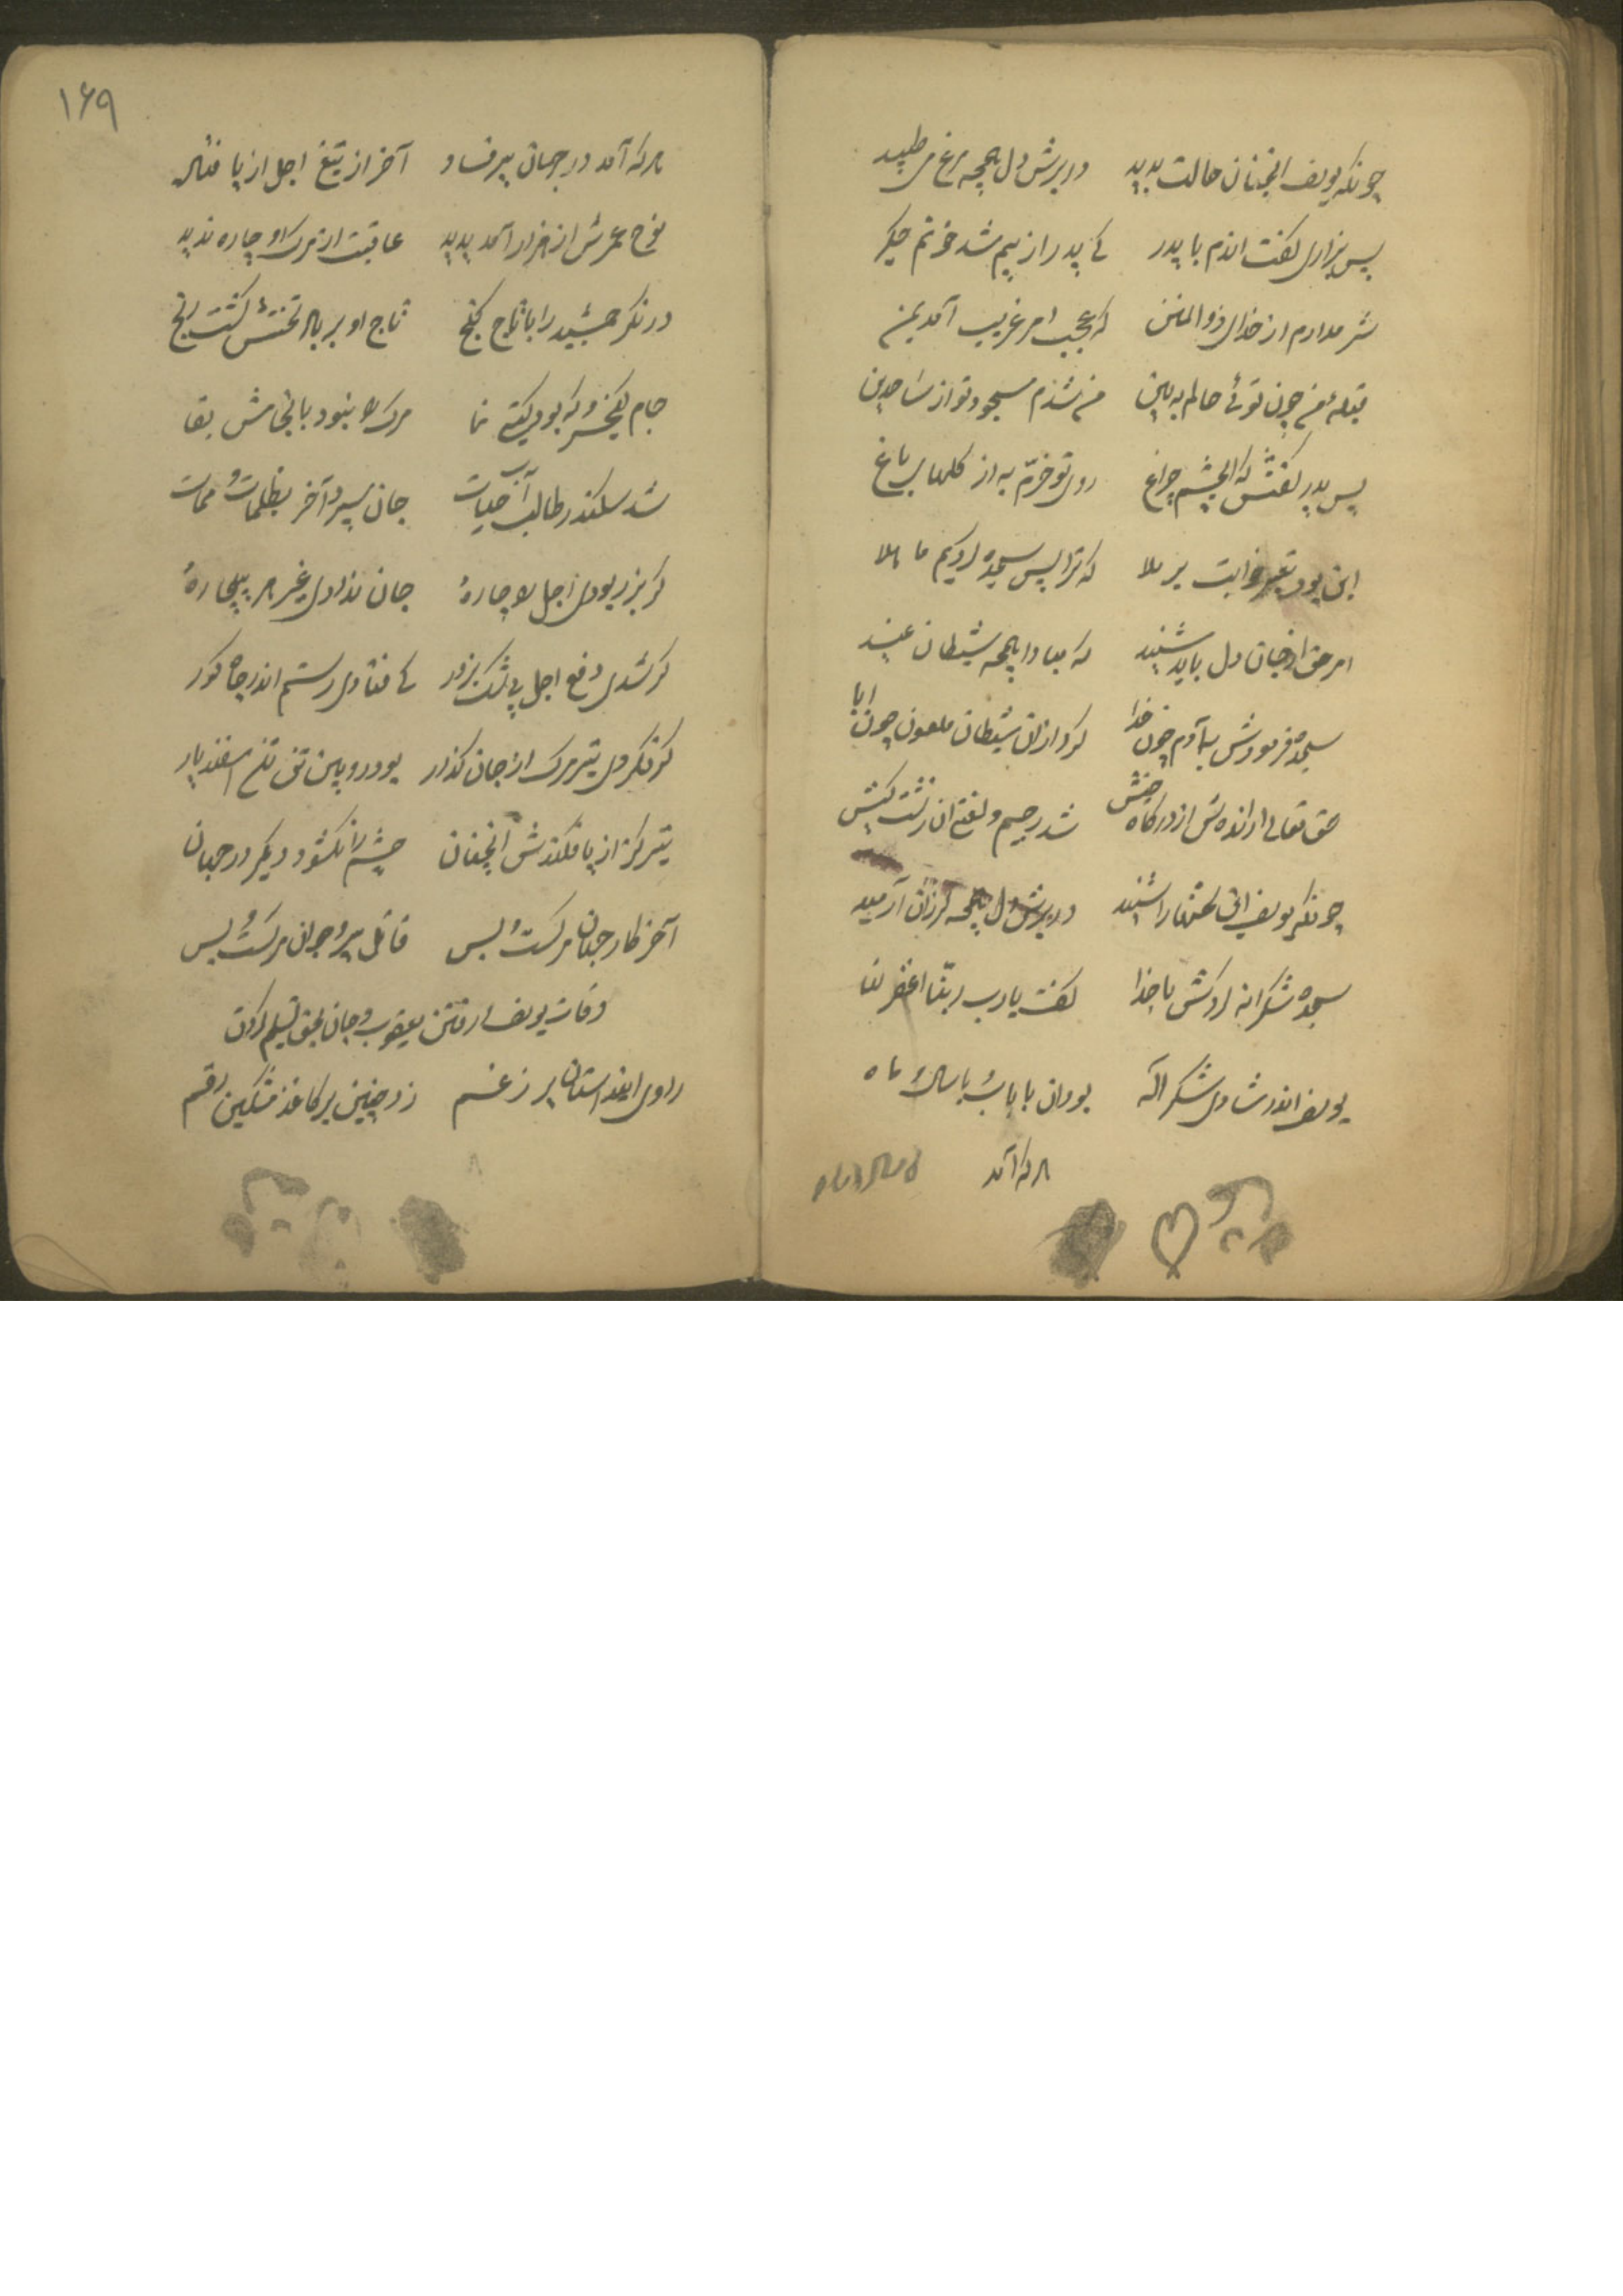 چونکه یوسف انچنان حالت بدید دربرش دل همچه مرغ می طپید
پس بزاری گفت اندم با پدر کای پدر از بیم شد خونم جگر
شرم دارم از خدای ذوالمنن که عجب امر غریب آمد بمن
قبله من چون توئی حالم به بین من شدم مسجود تو از ساجدین
پس پدر گفتش که ای چشم چراغ روی تو خرّم به از گلهای باغ
این بود تعبیر خوابت بر ملا که ترا پس سجده کردیم ما
امر حق از جان دل باید شنید که مبادا همچه شیطان عنید
سجده فرمودش به آدم چون خدا کرد ازان شیطان ملعون چون ابا
حق تعالی راندش از درگاه خش شد رجیم و لعنتی ان زشت کیش
چونکه یوسف این گفتار را شنید دربرش دل همچه لرزان آرمید
سجده شکرانه کردش با خدا گفت یارب ربّنا اغفر لنا
یوسف اندر شادی شکر اله بود ان با باب باسال ماه
هر که آمد
۱۶۹
هر که آمد در جهان پر فساد آخر از تیغ اجل از پا فتاد
نوح عمرش از هزار آمد پدید عاقبت از مرک او چاره ندید
در نگر جمشید را با تاج گنج تاج او بر باد تختش گشت رنج
جام کیخسرو که بود گیتی نما مرک را نبود با جامش بقا
شد سکندر طالب آب حیات جان سپرد آخر بظلمات ممات
گر بزر بودی اجل را چارهٔ جان ندادی غیر هر بیچارهٔ
گر شدی دفع اجل بی شک بزور کی فتادی رستم اندر چاه گور
گر نکردی تیر مرک از جان گذار بود رویین تن تن اسفندیار
تیر گز از پا فکندش انچنان چشم را نگشود دیگر در جهان
آخر کار جهان مرگست بس قاتل پیر و جوان مرگست بس
وفات یوسف رفتن یعقوب و جان بحق تسلیم کردن
راوی این داستان پر ز غم زد چنین بر کاغذ مشکین رقم